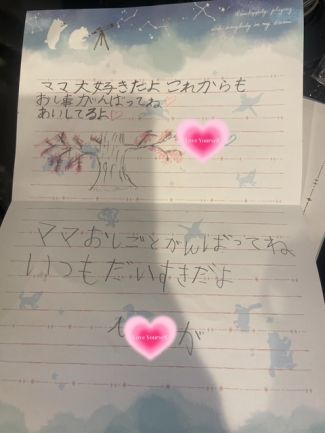 ママ大好きだよこれからも
お仕事がんばってね♡
あいしてるよ♡
Love Yourself
ママおしごとがんばってね
いつもだいすきだよ
Love Yourself
が